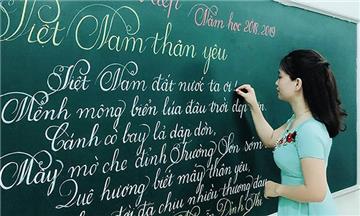 Năm học 2018.2019
Việt Nam thân yêu
Việt Nam đất nước ta ơi
Mênh mông biển lúa đâu trời đẹp
Cánh cò bay lả dập dờn,
Mây mờ che đỉnh Trường Sơn sớm
Quê hương biết mấy thân yêu,
đời đã chịu nhiều thương đau
Đình Thi